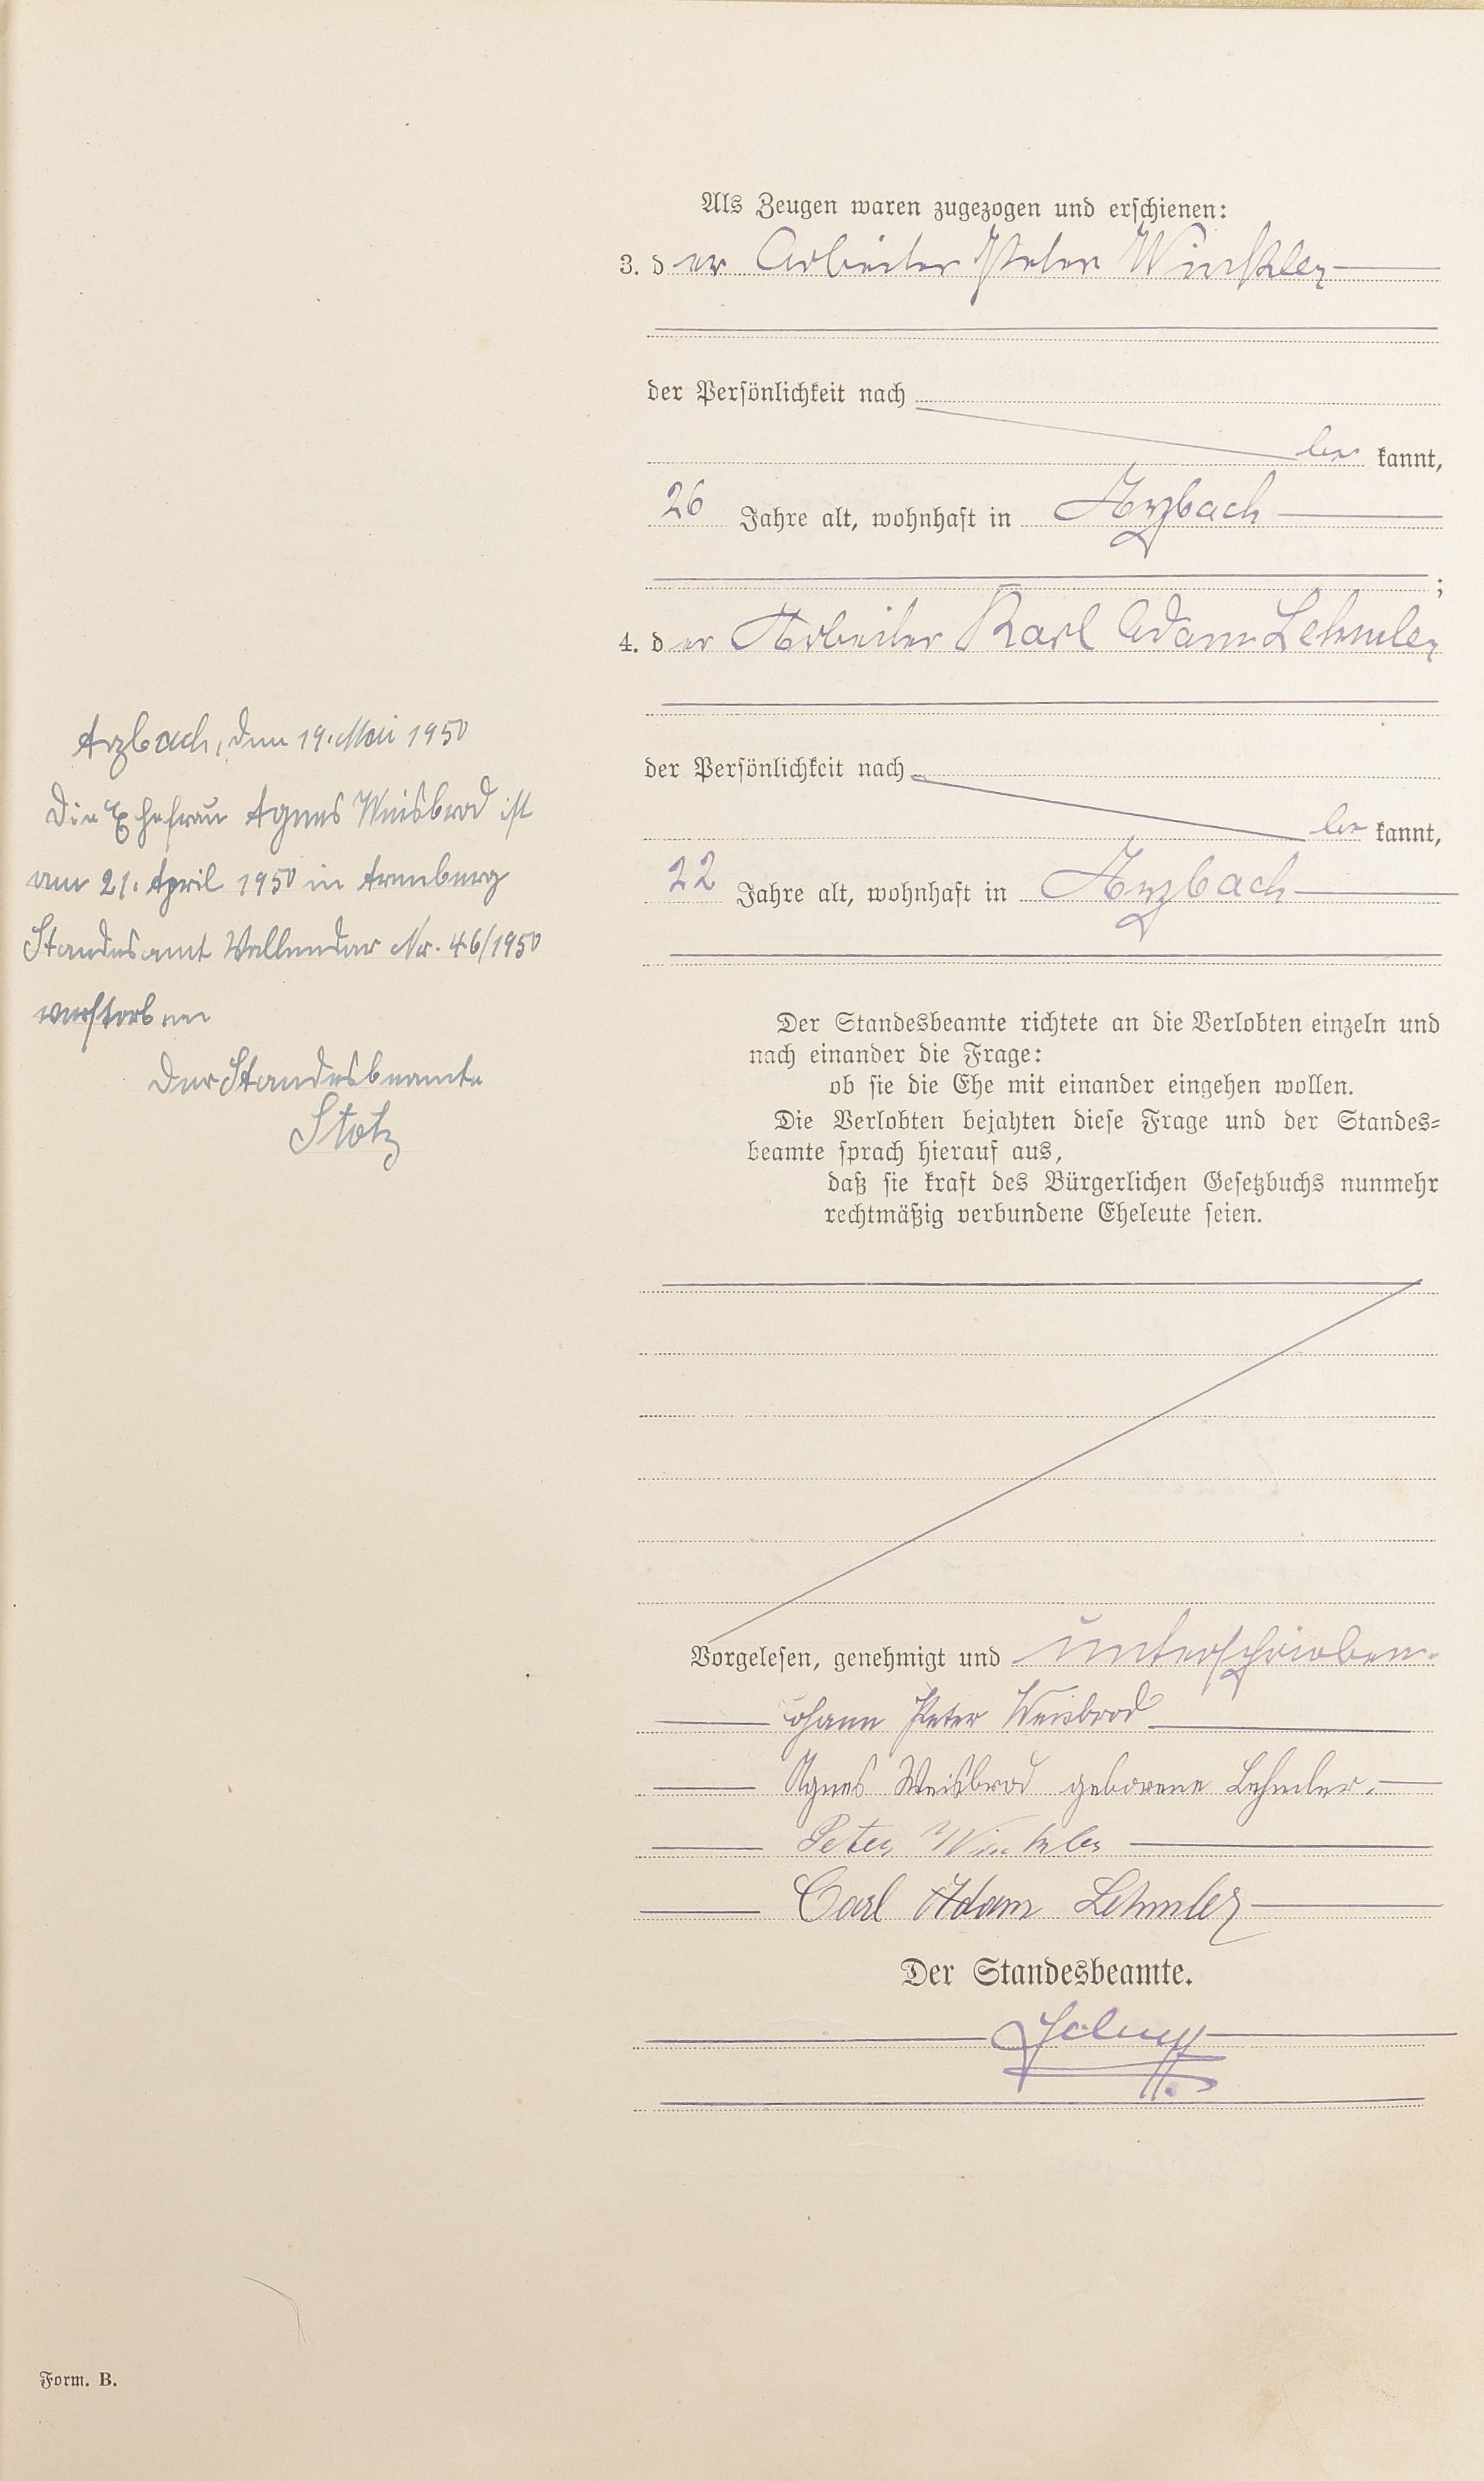 Als Zeugen waren zugezogen und erschienen:
3. der Arbeiter Peter Winkler
der Persönlichkeit nach
be kannt,
26 Jahre alt, wohnhaft in Arzbach
;
4. der Arbeiter Karl Adam Lehmler
der Persönlichkeit nach
be kannt,
22 Jahre alt, wohnhaft in Arzbach
Arzbach, den 19. Mai 1950
Die Ehefrau Agnes Weisbrod ist
am 21. April 1950 in Arenberg
Standesamt Vallendar Nr. 46/1950
verstorben
Der Standesbeamte
Stotz
Der Standesbeamte richtete an die Verlobten einzeln und
nach einander die Frage:
ob sie die Ehe mit einander eingehen wollen.
Die Verlobten bejahten diese Frage und der Standes-
beamte sprach hierauf aus,
daß sie kraft des Bürgerlichen Gesetzbuchs nunmehr
rechtmäßig verbundene Eheleute seien.
Vorgelesen, genehmigt und unterschrieben.
Johann Peter Weisbrod
Agnes Weisbrod geborene Lehmler.
Peter Winkler
Carl Adam Lehmler
Der Standesbeamte.
Form. B.